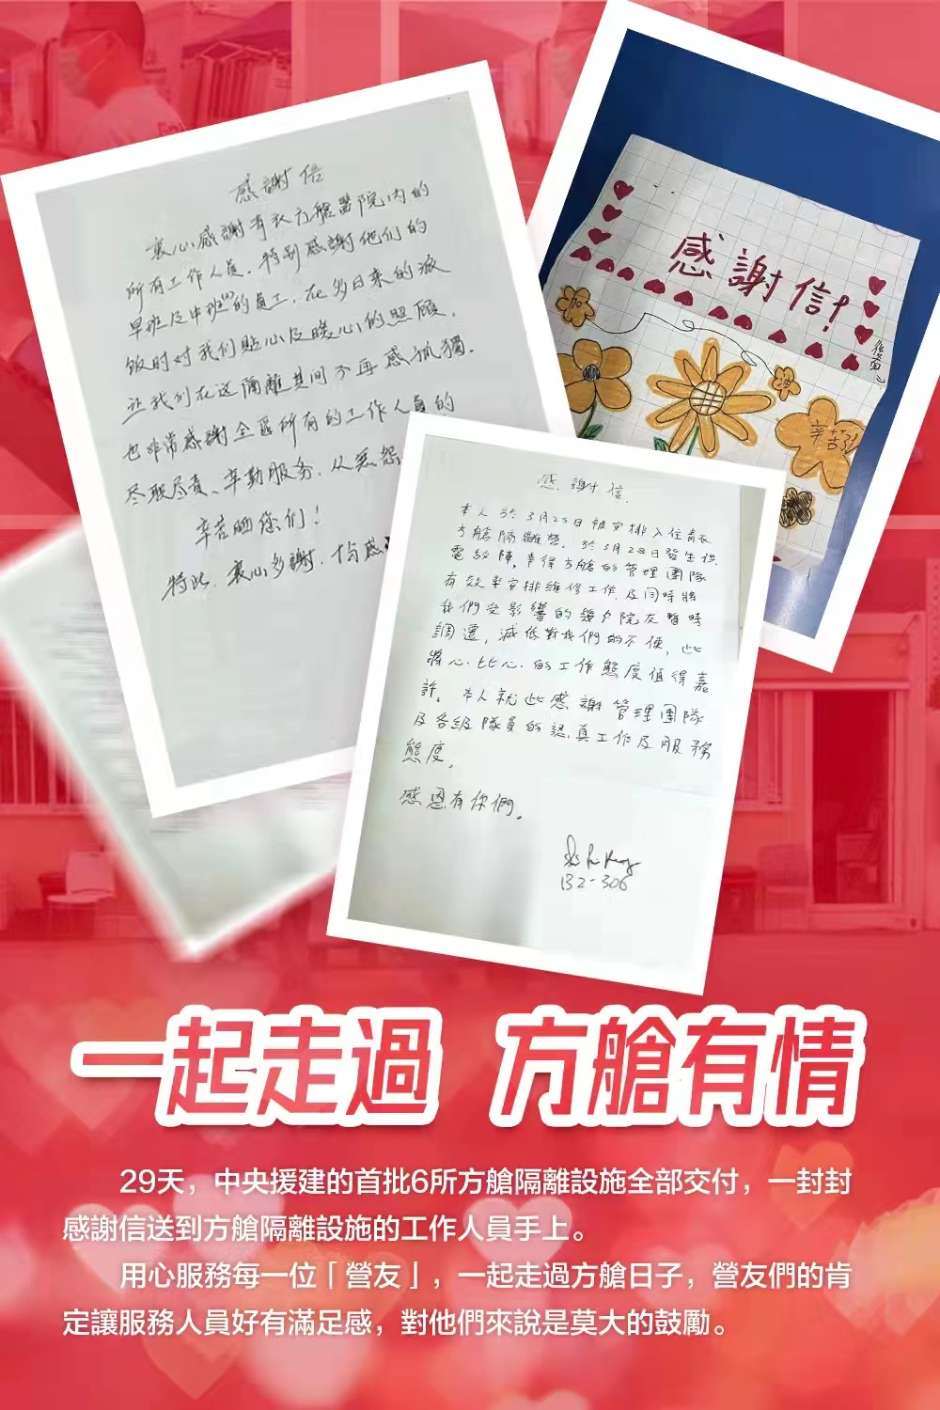 感謝信
衷心感謝青衣方艙醫院內的
所有工作人員，特别感謝他們的
早班及中班的員工，在多日來的派
饭时对我们貼心及暖心的照顧，
让我们在这隔離其间不再感孤獨．
也非常感謝全區所有的工作人員的
尽职尽责、辛勤服务、从無怨
辛苦晒您们！
特此、衷心多謝
感謝信!
加
油
辛苦了
感謝信
本人於3月25日被安排入住青衣
方艙隔離營，於3月28日發生供
電故障，幸得方艙的管理團隊
有效率安排維修工作，及同時將
我們受影響的幾户院友暫時
調遷，減低對我們的不便，此
將心比心的工作態度值得嘉
許，本人就此感謝管理團隊
及各級隊員的認真工作及服務
態度，
感恩有你們。
132-306
一起走過 方艙有情
29天，中央援建的首批6所方艙隔離設施全部交付，一封封
感謝信送到方艙隔離設施的工作人員手上。
用心服務每一位「營友」，一起走過方艙日子，營友們的肯
定讓服務人員好有滿足感，對他們來說是莫大的鼓勵。